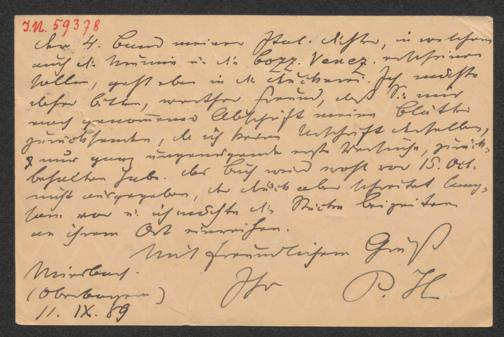 I.N. 59378
Der 4. Band meiner Ital. Dichter, in welchem
auch die  u. die Cozz. Venez. erscheinen
sollen, geht eben in die Druckerei. Ich möchte
daher bitten, werther Freund, daß Sie mir
nach genommener Abschrift meine Blätter
zurücksenden, da ich keine Abschrift derselben,
nur ganz ungenügende erste Versuche, zurück-
behalten habe. Das Buch wird wohl vor 15. Oct.
nicht ausgegeben, der Druck aber schreitet lang-
sam vor u. ich möchte die Stücke beizeiten
an ihrem Ort einreihen.
Mit freundlichem Gruß
Miesbach. Ihr P. H
(Oberbayern)
11. IX. 89